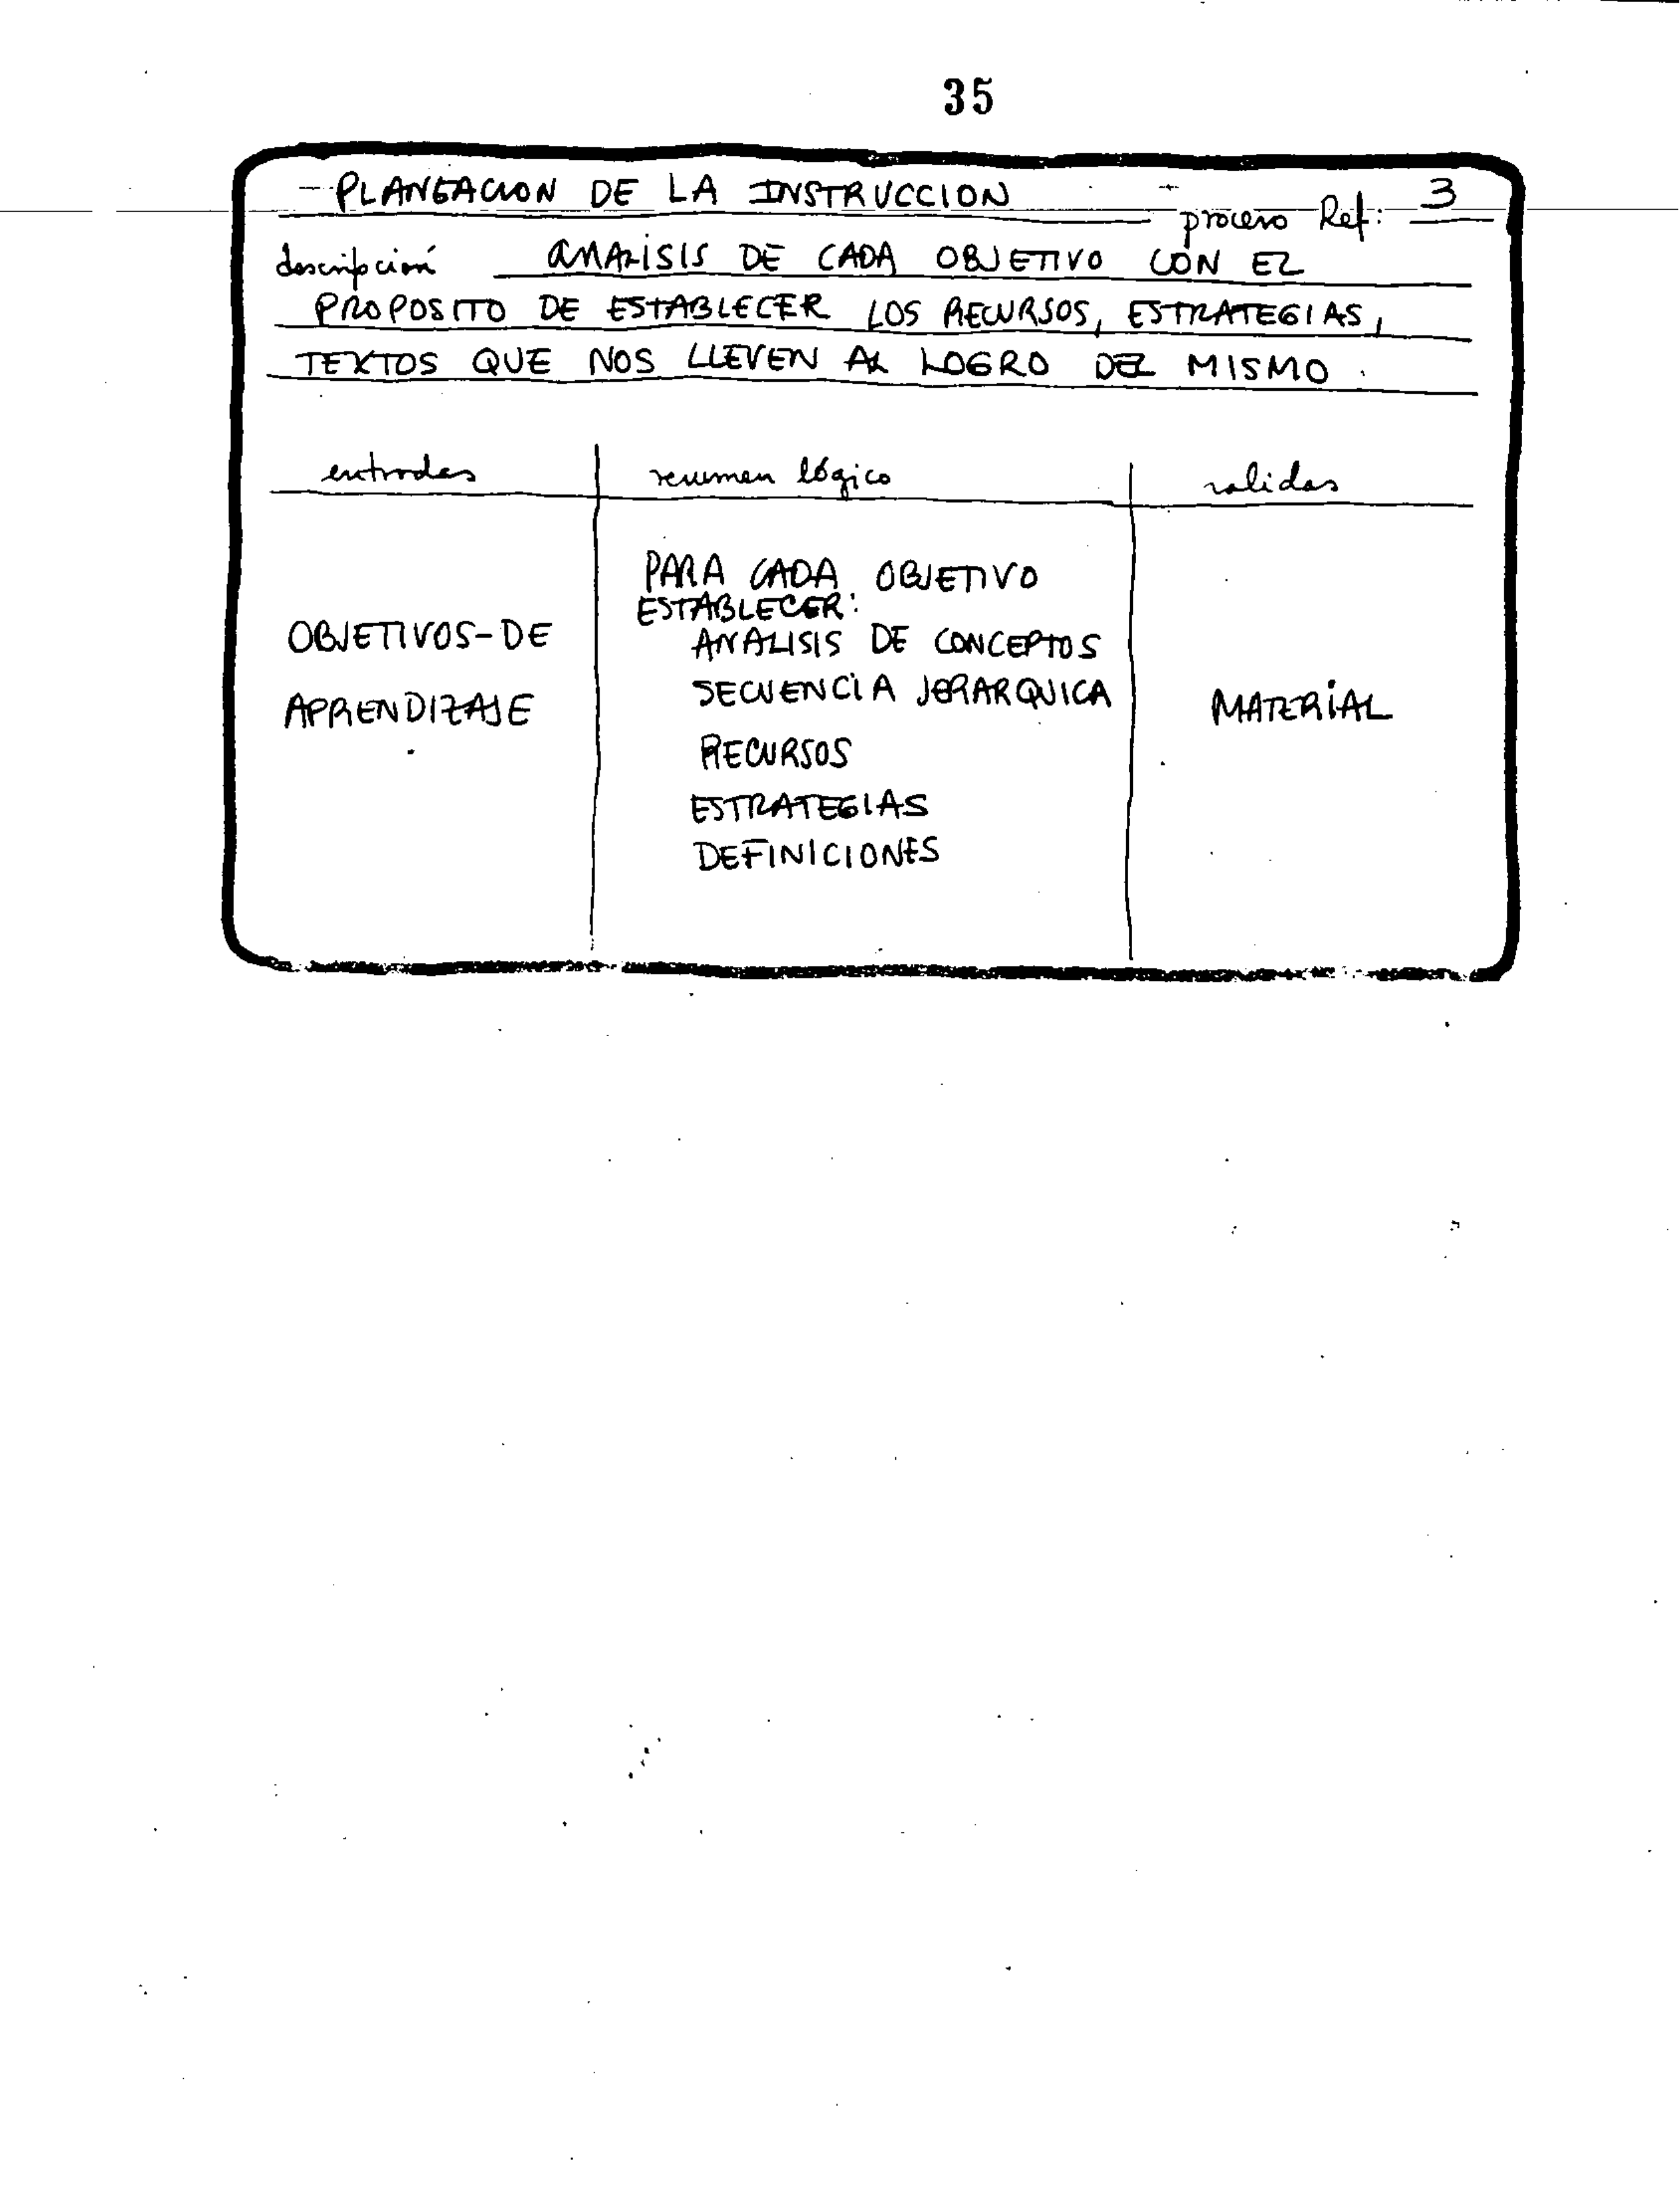 35
PLANEACION DE LA INSTRUCCION proceso Ref: 3
descripción ANALISIS DE CADA OBJETIVO CON EL
PROPOSITO DE ESTABLECER LOS RECURSOS, ESTRATEGIAS,
TEXTOS QUE NOS LLEVEN AL LOGRO DEL MISMO.
entradas resumen lógico salidas
PARA CADA OBJETIVO
ESTABLECER:
OBJETIVOS-DE ANALISIS DE CONCEPTOS
APRENDIZAJE SECUENCIA JERARQUICA MATERIAL
RECURSOS
ESTRATEGIAS
DEFINICIONES